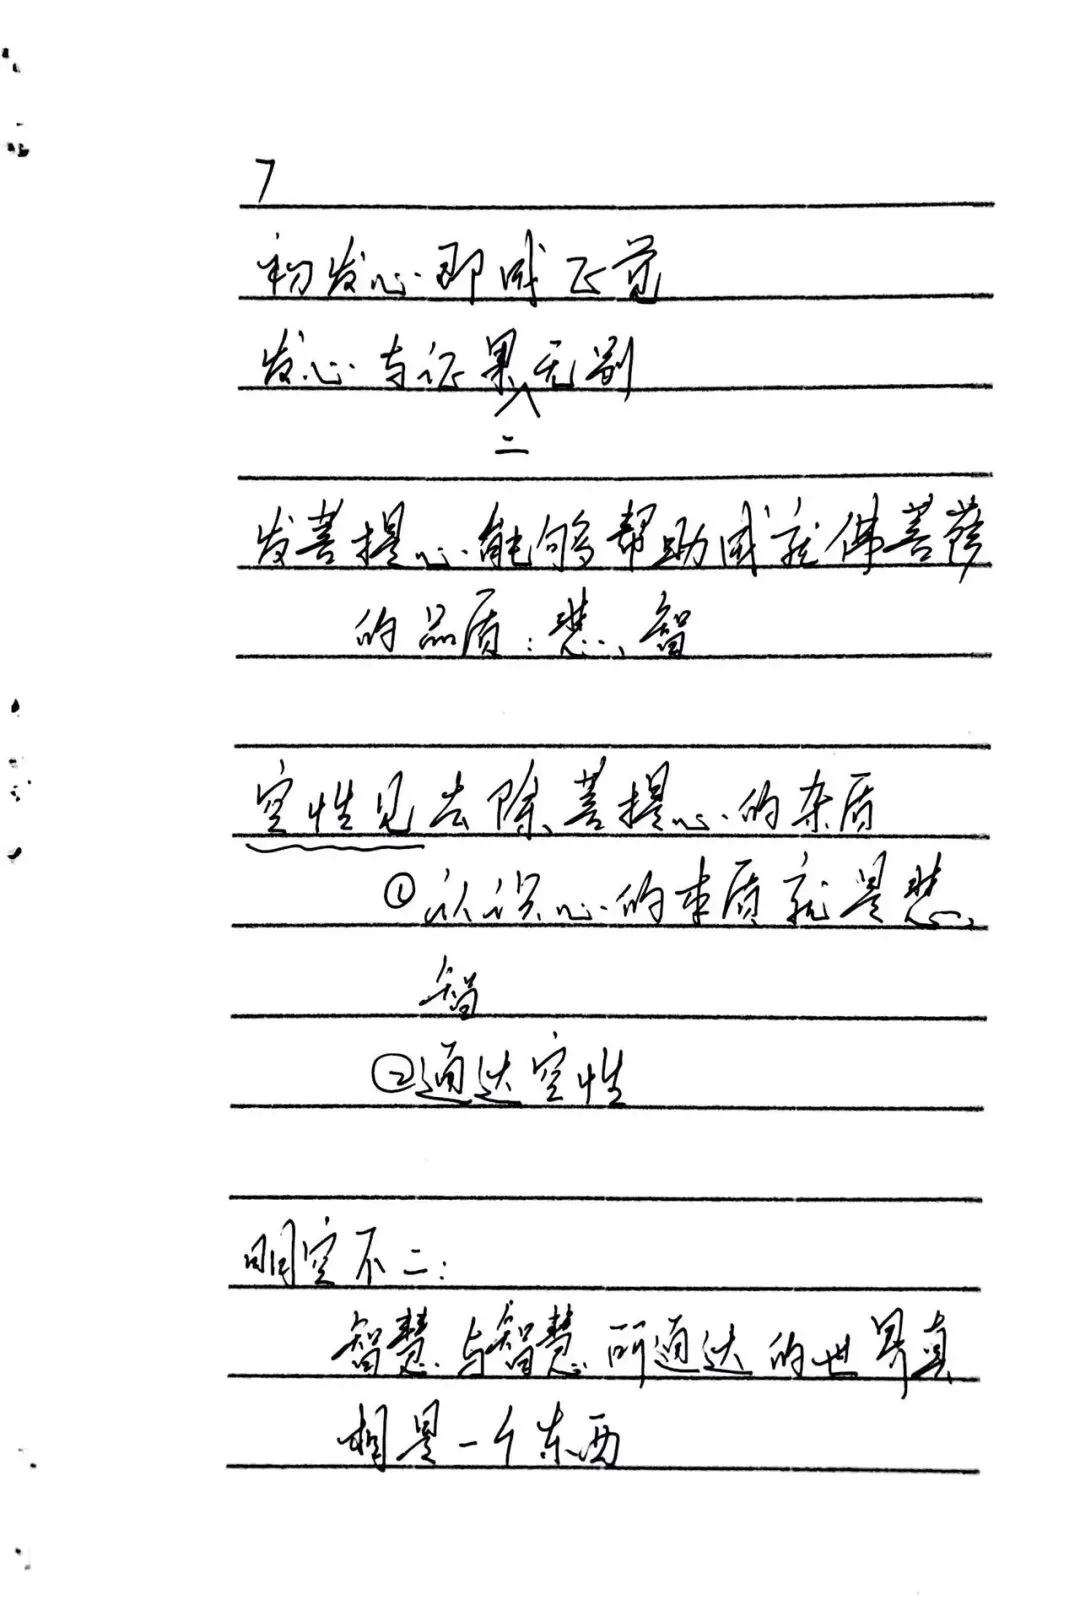 7
初发心即成正觉
发心与证果无别
二
发菩提心能够帮助成就佛菩萨
的品质：悲、智
空性见去除菩提心的杂质
①认识心的本质就是悲、
智
②通达空性
明空不二：
智慧与智慧所通达的世界真
相是一个东西